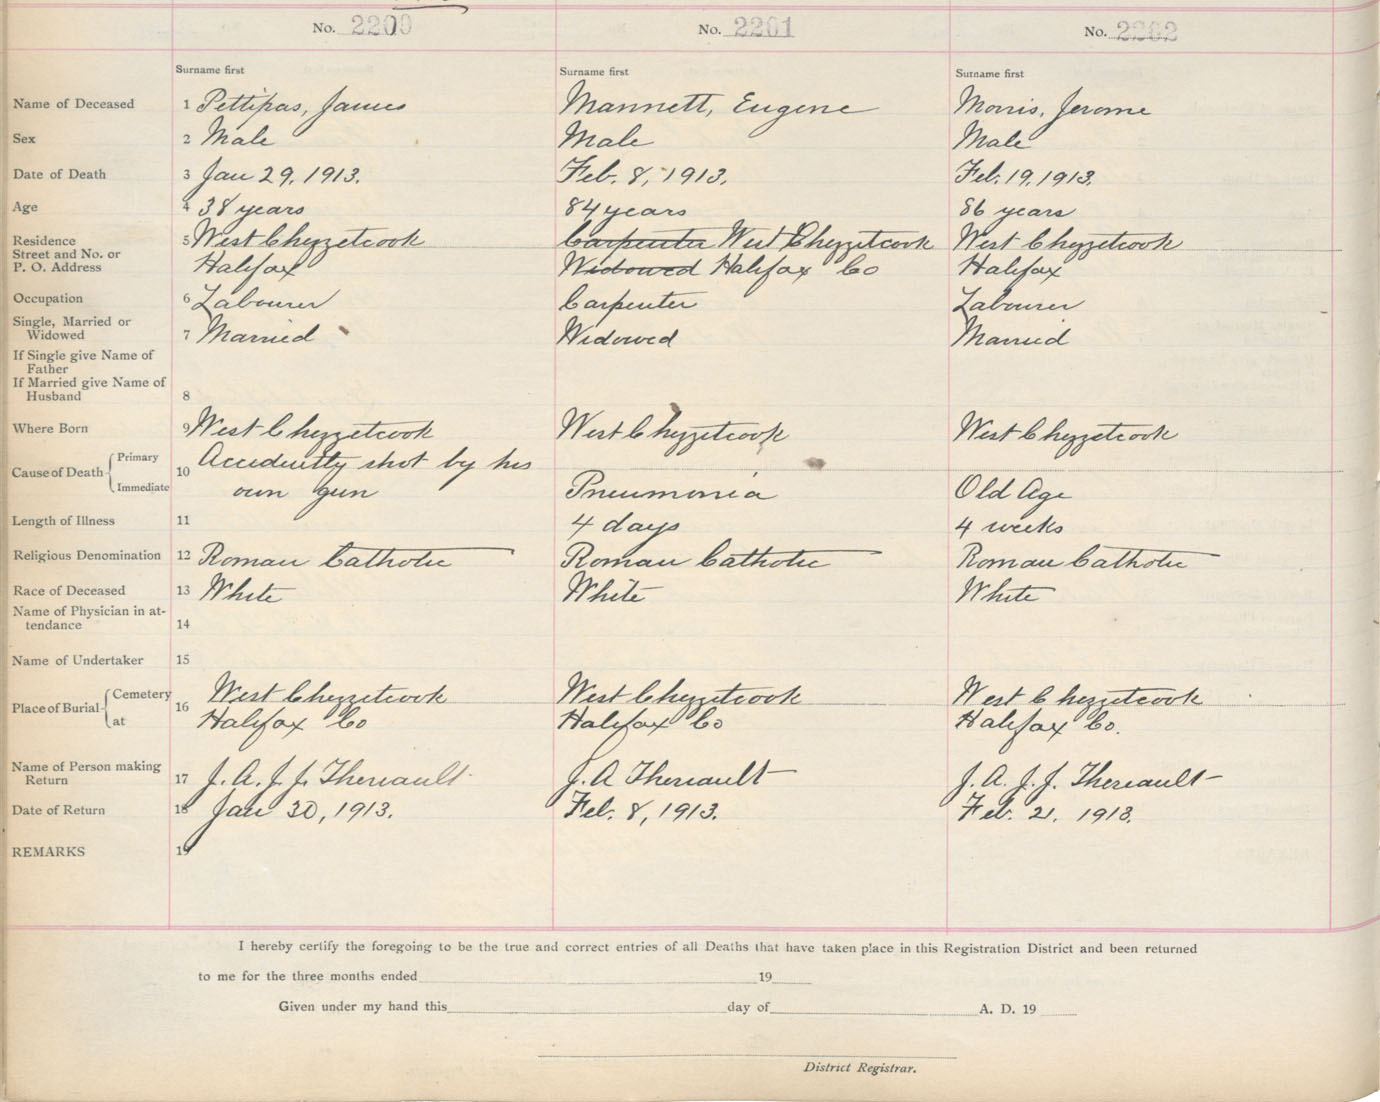 No. 2200 No. 2201 No. 2202
Surname first Surname first Surname first
Name of Deceased 1 Pettipas, James Mannett, Eugene Morris, Jerome
Sex 2 Male Male Male
Date of Death 3 Jan 29, 1913. Feb. 8, 1913. Feb. 19, 1913.
Age 4 38 years 84 years 86 years
Residence 5 West Chezzetcook Carpenter West Chezzetcook West Chezzetcook
Street and No. or
P. O. Address Halifax Widowed Halifax Co Halifax
Occupation 6 Labourer Carpenter Labourer
Single, Married or
Widowed 7 Married Widowed Married
If Single give Name of
Father
If Married give Name of
Husband 8
Where Born 9 West Chezzetcook West Chezzetcook West Chezzetcook
Cause of Death Primary 10 Accidently shot by his
Immediate own gun Pneumonia Old Age
Length of Illness 11 4 days 4 weeks
Religious Denomination 12 Roman Catholic Roman Catholic Roman Catholic
Race of Deceased 13 White White White
Name of Physician in at-
tendance 14
Name of Undertaker 15
Place of Burial Cemetery 16 West Chezzetcook West Chezzetcook West Chezzetcook
at Halifax Co Halifax Co Halifax Co.
Name of Person making
Return 17 J. A. J. J. Theriault J. A Theriault J. A. J. J. Theriault
Date of Return 18 Jan 30, 1913. Feb. 8, 1913. Feb. 21. 1913.
REMARKS 19
I hereby certify the foregoing to be the true and correct entries of all Deaths that have taken place in this Registration District and been returned
to me for the three months ended 19
Given under my hand this day of A. D. 19
District Registrar.